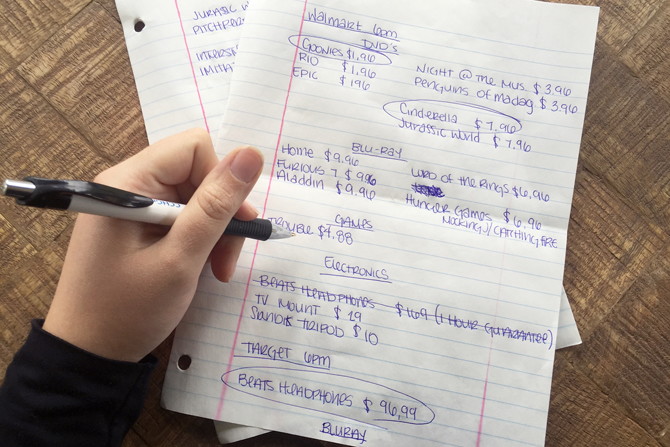 JURASSIC W
PITCHPER
INTERST
IMITA
Walmart 6pm
DVD'S
GOONIES $1.96
RIO $1.96
EPIC $196
NIGHT @ THE MUS. $3.96
PENGUINS OF MADAG $3.96
Cinderella $7.96
Jurassic World $7.96
BLU-RAY
Home $9.96
FURIOUS 7 $996
Aladdin $9.96
LORD OF THE RINGS $6.96
HUNGER GAMES $6.96
MOCKINGJ/CATCHING FIRE
GAMES
TROUBLE $4.88
ELECTRONICS
BEATS HEADPHONES $169 (1 HOUR GUARANTEE)
TV MOUNT $19
SANDISK TRIPOD $10
TARGET 6PM
BEATS HEADPHONES $96,99
BLURAY